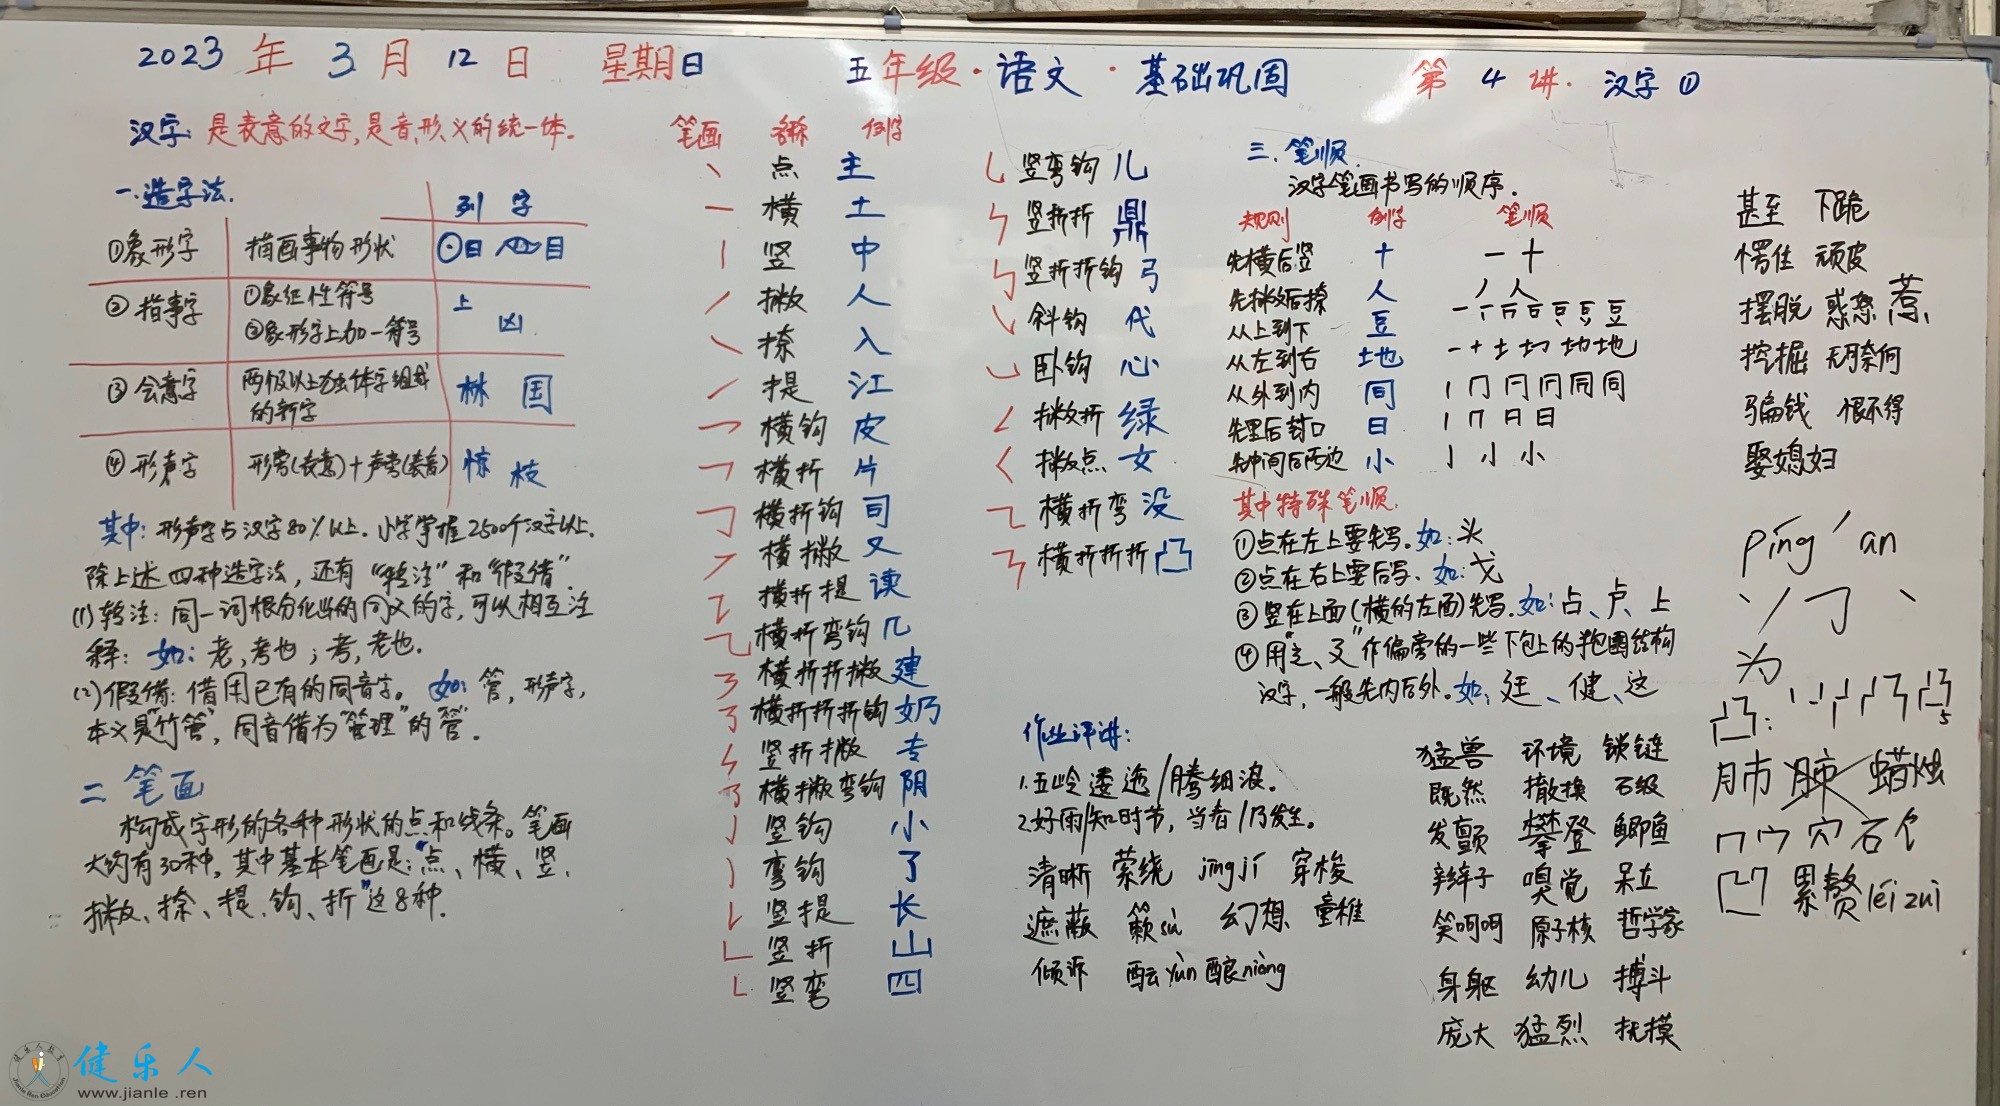 2023年3月12日 星期日 五年级·语文·基础巩固 第4讲·汉字①
汉字: 是表意的文字,是音、形、义的统一体。
一.造字法.
列 字
①象形字 描画事物形状 日 目
②指事字 ①象征性符号 上
②象形字上加一符号 凶
③会意字 两个以上独体字组成的新字 林 国
④形声字 形旁(表意)+声旁(表音) 惊 枝
其中: 形声字占汉字80%以上. 小学掌握2500个汉字以上.
除上述四种造字法, 还有“转注”和“假借”.
(1)转注: 同一词根分化出的同义的字, 可以相互注
释: 如: 老, 考也; 考, 老也.
(2)假借: 借用已有的同音字。如: 管, 形声字,
本义是“竹管”, 同音借为“管理”的“管”.
二 笔画
构成字形的各种形状的点和线条。笔画
大约有30种, 其中基本笔画是:“点、横、竖、
撇、捺、提、钩、折”这8种.
笔画 名称 例字
丶 点 主
一 横 土
丨 竖 中
丿 撇 人
㇏ 捺 入
㇀ 提 江
乛 横钩 皮
𠃍 横折 片
𠃌 横折钩 司
㇇ 横撇 又
㇊ 横折提 读
㇈ 横折弯钩 几
㇋ 横折折撇 建
㇡ 横折折折钩 奶
ㄣ 竖折撇 专
㇌ 横撇弯钩 阴
亅 竖钩 小
㇁ 弯钩 了
㇙ 竖提 长
㇗ 竖折 山
㇄ 竖弯 四
乚 竖弯钩 儿
ㄣ 竖折折 鼎
㇉ 竖折折钩 弓
㇂ 斜钩 代
㇃ 卧钩 心
㇜ 撇折 绿
㇛ 撇点 女
㇍ 横折弯 没
㇎ 横折折折 凸
三. 笔顺.
汉字笔画书写的顺序.
规则 例字 笔顺
先横后竖 十 一 十
先撇后捺 人 丿 人
从上到下 豆
从左到右 地
从外到内 同
先里后封口 日
先中间后两边 小
其中特殊笔顺.
①点在左上要先写. 如: 头
②点在右上要后写. 如: 戈
③竖在上面(横的左面)先写. 如: 占、卢、上
④用“辶、廴”作偏旁的一些下包上的半包围结构
汉字, 一般先内后外. 如: 廷、健、这
作业评讲:
1. 五岭逶迤/腾细浪。
2. 好雨/知时节, 当春/乃发生。
清晰 萦绕 jīng jí 穿梭
遮蔽 簌sù 幻想 童稚
倾诉 酝yùn酿niàng
猛兽 环境 锁链
既然 撤换 石级
发颤 攀登 鲫鱼
辫子 嗅觉 呆立
笑呵呵 原子核 哲学家
身躯 幼儿 搏斗
庞大 猛烈 抚摸
甚至 下跪
愣住 顽皮
摆脱 惹
挖掘 无奈何
骗钱 恨不得
娶媳妇
píng'an
丶丿㇆丶
为
凸: 5
肺 蜡烛
穴 石
凹 累赘 léi zuì
健乐人
www.jianle.ren